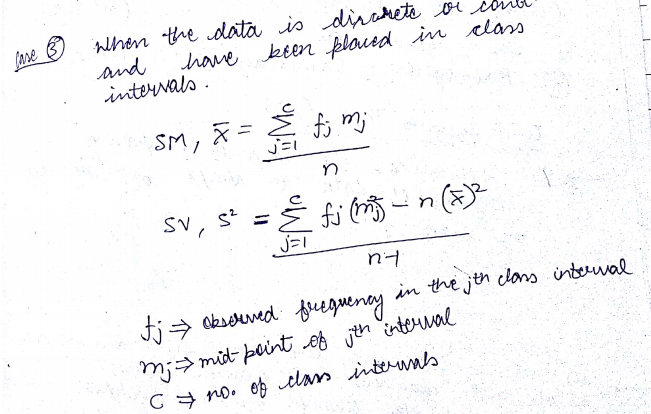 Case ③ When the data is discrete or
and have been placed in class
intervals.
SM, x̄ = Σ_{j=1}^{c} fj mj / n
SV, S² = Σ_{j=1}^{c} fj (mj²) - n (x̄)² / n-1
fj ⇒ observed frequency in the jth class interval
mj ⇒ mid-point of jth interval
C ⇒ no. of class intervals